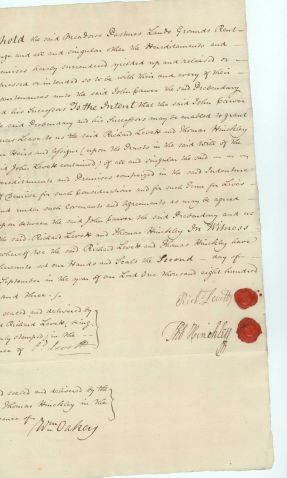 hold the said Meadows Pastures Lands Grounds Rent
age and all and singular other the Hereditaments and
emises hereby surrendered yielded up and released or
pressed or intended so to be with their and every of their
purtenances unto the said John Carver the said Decondary
nd his Successors To the Intent that the said John Carver
e said Decondary and his Successors may be enabled to grant
Lease to us the said Richard Levett and Thomas Hinckley
ur Heirs and Assigns (upon the Trusts in the said Will of the
aid John Levett contained) of all and singular the said
ereditaments and Premises comprized in the said Indenture
f Demise for such Considerations and for such Term for Lives
and under such Covenants and Agreements as may be agreed
upon between the said John Carver the said Decondary and us
the said Richard Levett and Thomas Hinckley In Witness
whereof we the said Richard Levett and Thomas Hinckley have
hereunto set our Hands and Seals the Second day of
September in the year of our Lord One thousand eight hundred
and three
Richd Levett
sealed and delivered by
d Richard Levett, being
Stamped, in the
nce of
Levett
Thos Hinckley
d sealed and delivered by the
Thomas Hinckley in the
sence of
Wm Oakey